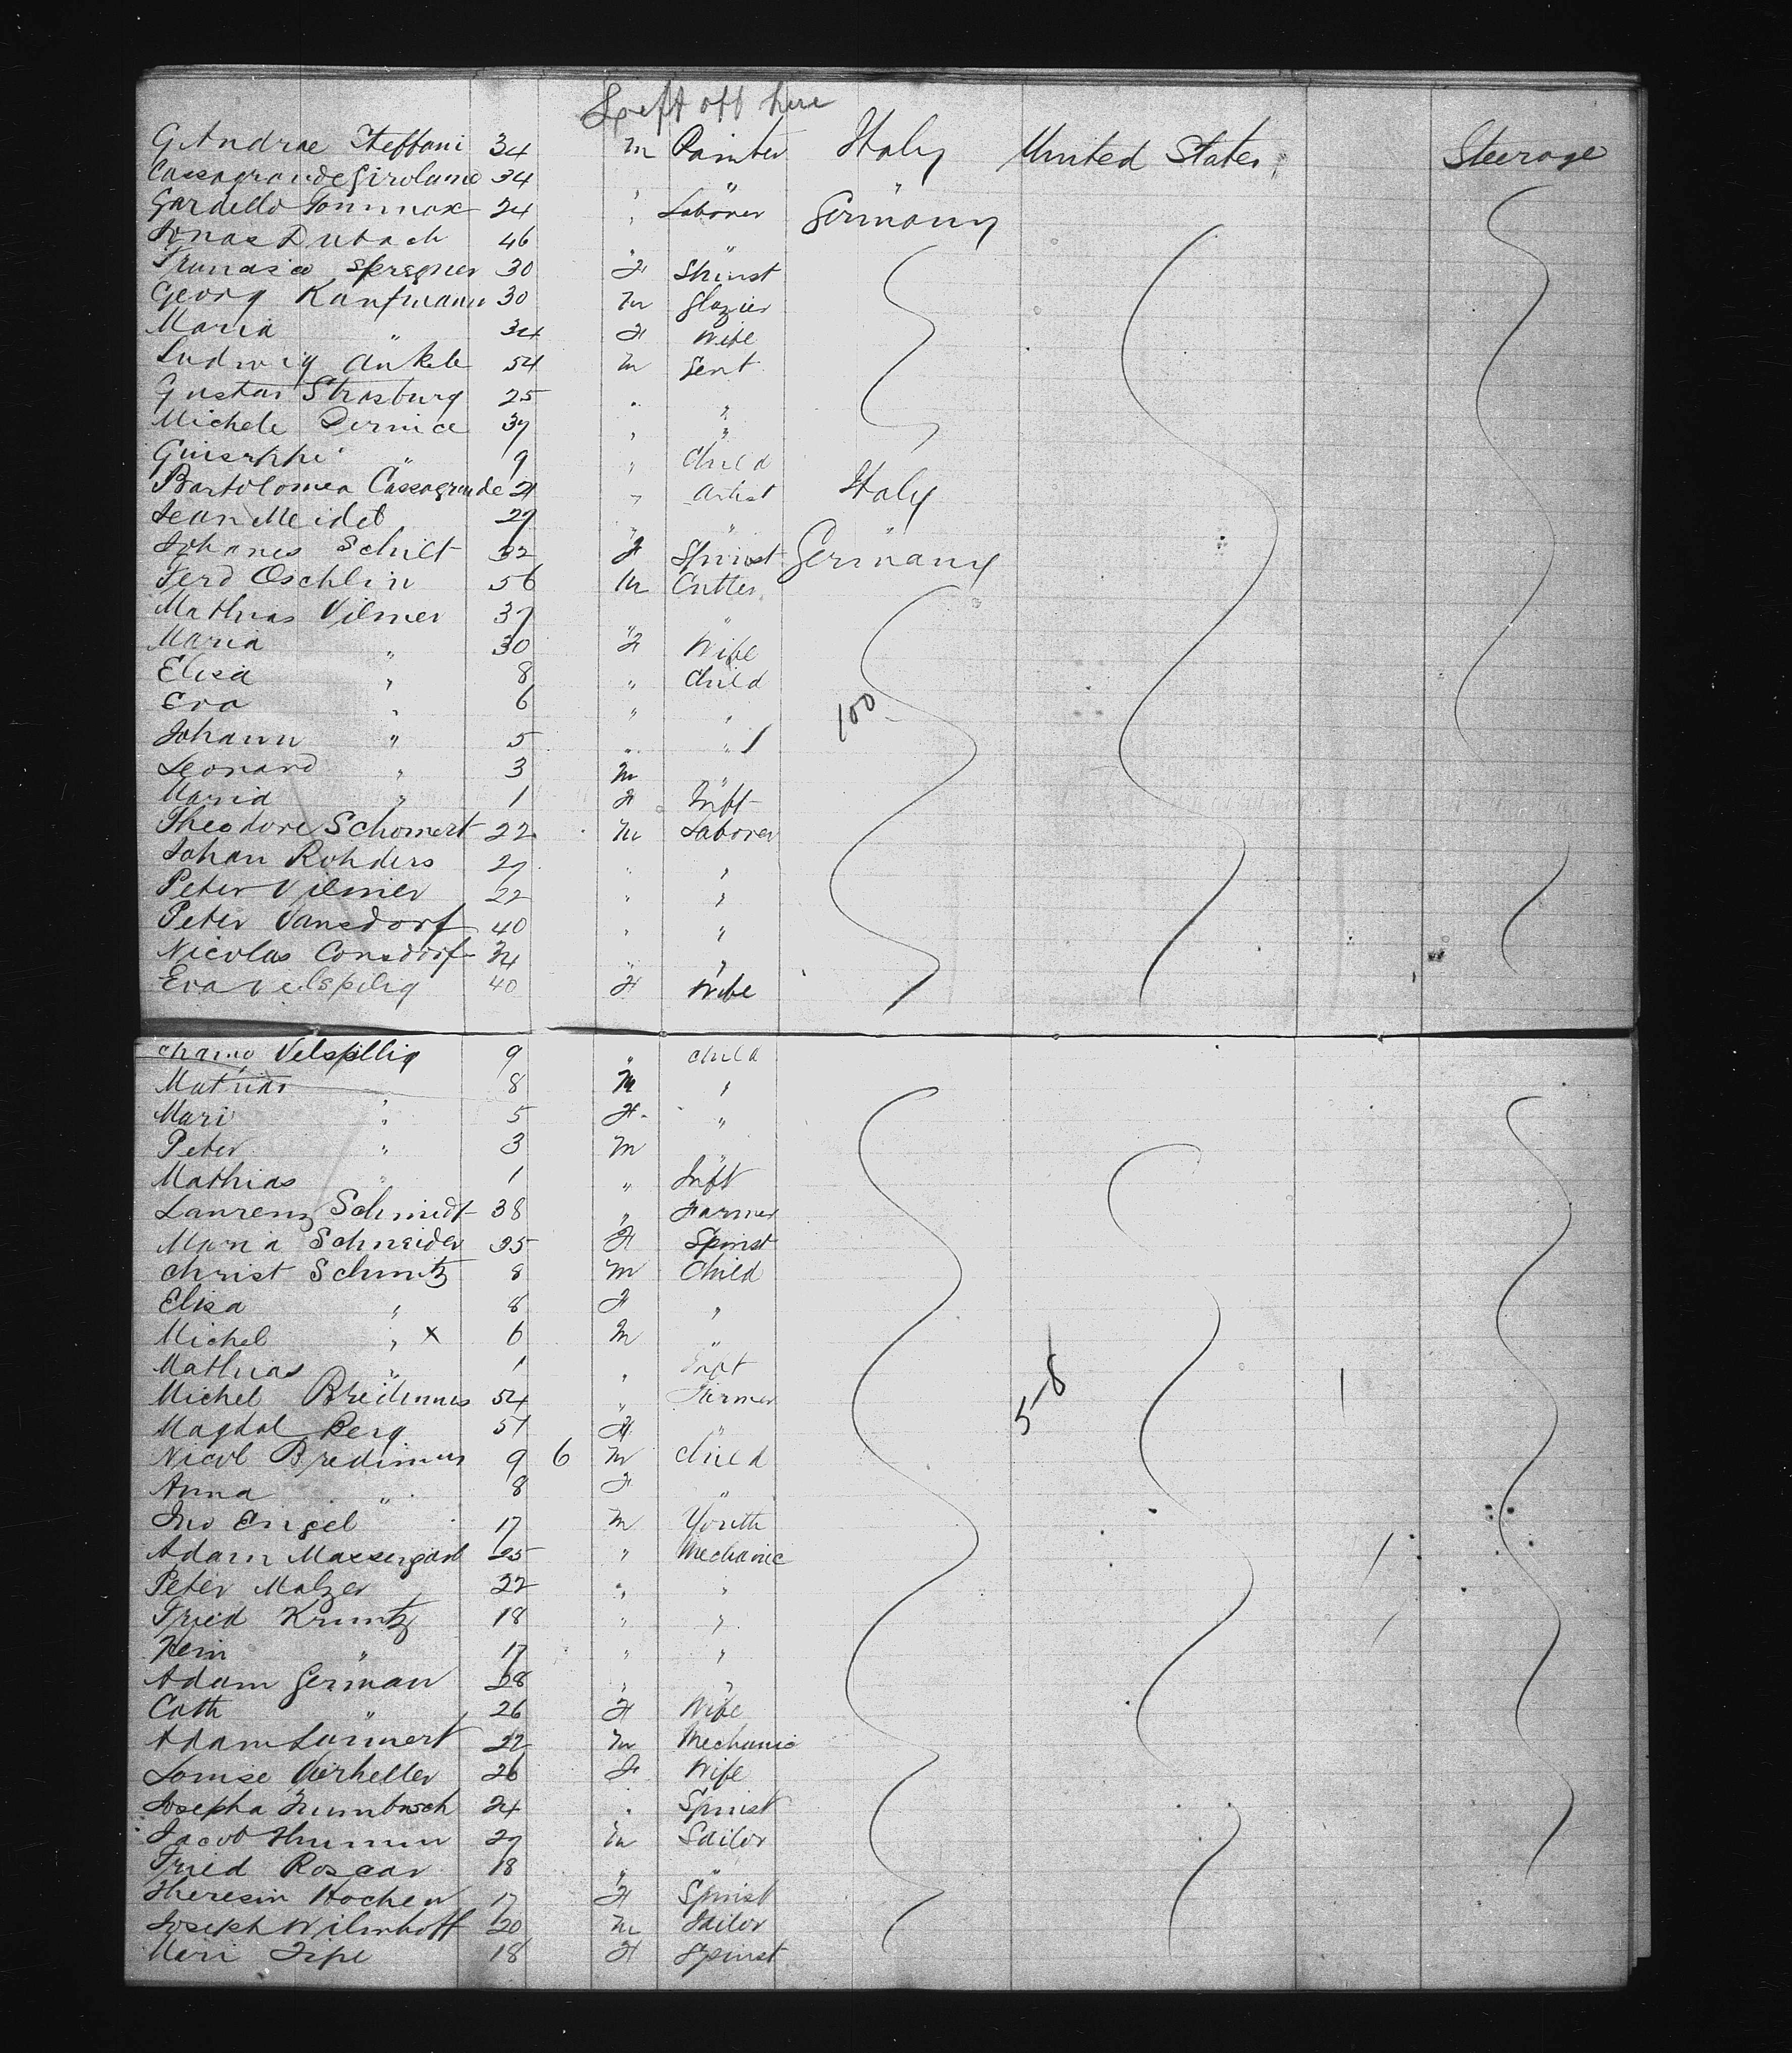 Left off here
G. Andrae Steffani 34 m Painter Italy United States Steerage
Cassagrande Girolamo 34 " "
Gardello Tommax 24 " Laborer Germany
Jonas Dubach 46 " "
Spregner 30 F Spinst
Georg Kaufmann 30 m Glazier
Maria " 34 F Wife
Ludwig Ankele 54 m Gent
Gustav Strasburg 25 " "
Michele Dernice 37 " "
Guisepphi " 9 " Child
Bartolomea Cassagrande 21 " Artist Italy
Jean Meidet 27 " " "
Johanes Schilt 32 F Spinst Germany
Ferd Oschlin 56 m Cutter
Mathias Vilmer 37 " "
Maria " 30 F Wife
Elisa " 8 " Child
Eva " 6 " " 100
Johann " 5 " "
Leonard " 3 m "
Maria " 1 F Inft
Theodore Schomert 22 m Laborer
Johan Rohders 27 " "
Peter Vilmer 22 " "
Peter Vansdorf 40 " "
Nicolas Consdorf 24 " "
Eva Velspilig 40 F Wife
Velspillig 9 " child
Mathias " 8 m "
Mari " 5 F "
Peter " 3 m "
Mathias " 1 " Inft
Laurenz Schmidt 38 " Farmer
Maria Schneider 35 F Spinst
Christ Schmitz 8 m Child
Elisa " 8 F "
Michel " x 6 m "
Mathias " 1 " Inft
Michel Breidimus 54 " Farmer 58
Magdal Berg 51 F "
Nicol Bredimus 9 6 m child
Anna " 8 F "
Jno Engel 17 m Youth
Adam Massengarb 25 " Mechanic
Peter Malzer 22 " "
Fried Kruntz 18 " "
Hein " 17 " "
Adam German 28 " "
Cath " 26 F Wife
Adam Lannert 22 m Mechanic
Louise Vierheller 26 F Wife
Josepha Trumbusch 24 " Spinst
Jacob Thumm 27 m Sailor
Fried Rosgar 18 " "
Theresin Hocher 17 F Spinst
Joseph Wilmhoff 20 m Sailor
Mari Fipe 18 F Spinst